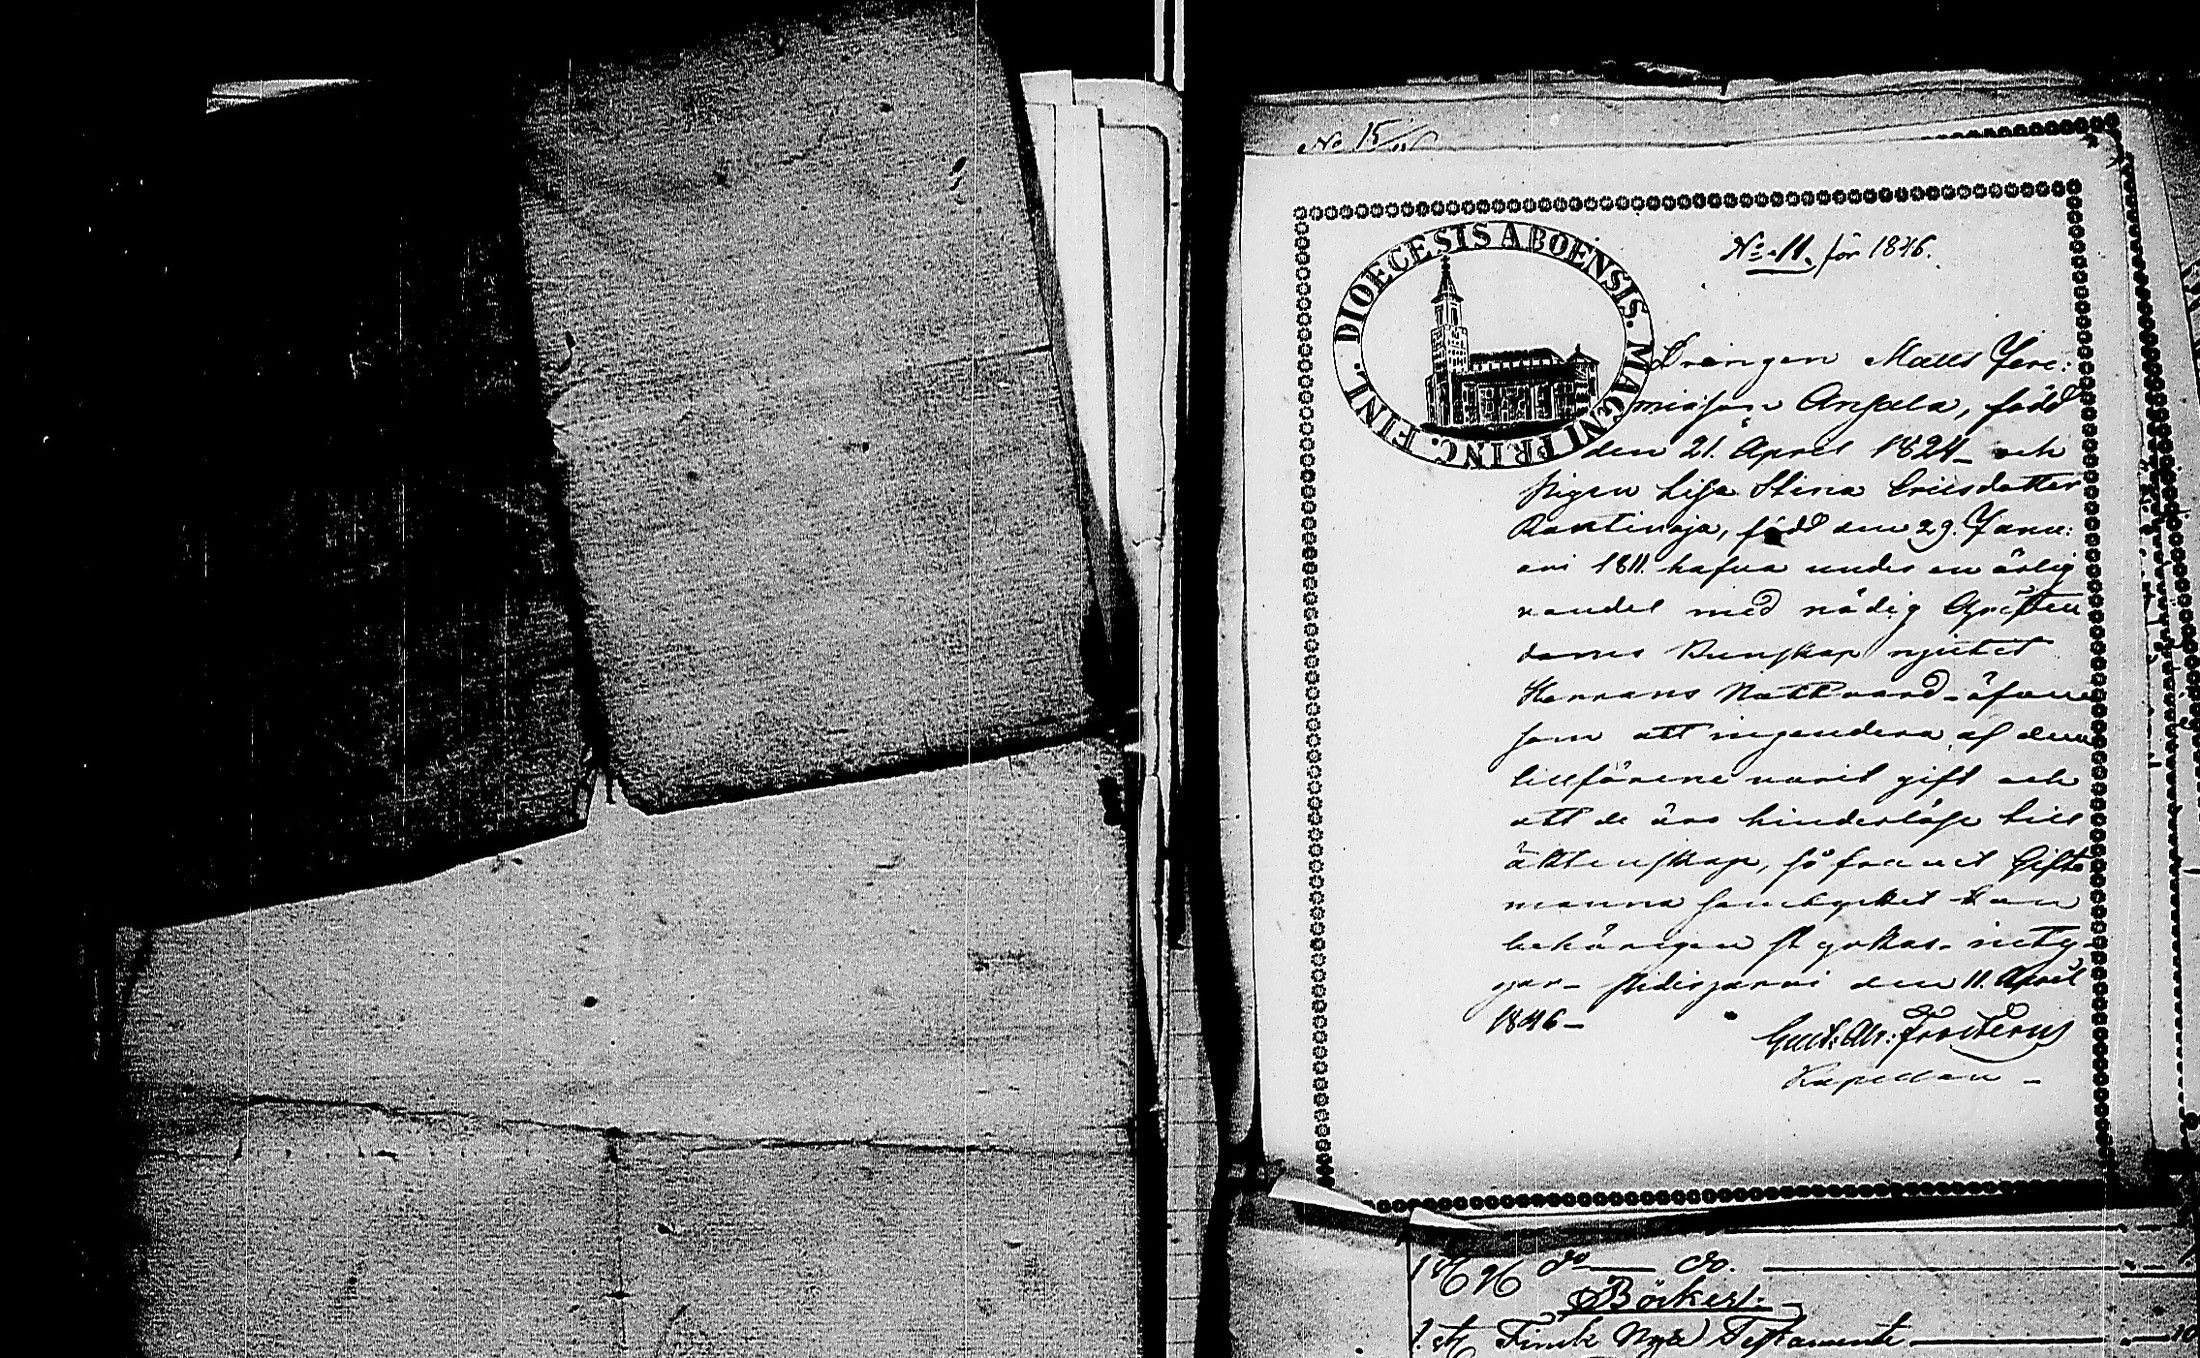 No 15
DIOECESIS ABOENSIS. MAGNI PRINC. FINL.
No 11. för 1846.
Drängen Matts Jere:
miasson Anjala, född
den 21. April 1824 och
Pigan Lisa Stina Ericsdotter
Rautioaja, född den 29. Janu:
ari 1811. hafva under en ärlig
vandel med nödig Christen
doms Kunskap njutit
Herrans Nattvard - äfven
som att ingendera af dem
tillförene varit gift och
att de äro hinderlöse till
äktenskap, så framt Gifto
manna samtycket kan
behörigen styrkas. inty
gar - Pidisjärvi den 11. April
1846 -
Kapellan -
do do.
Böcker.
1. st. Finsk Nya Testamente 10